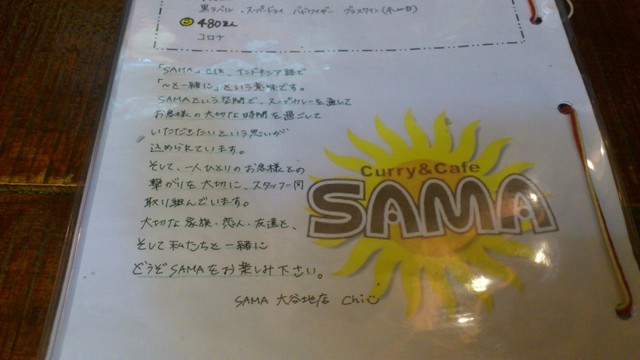 黒ラベル、スーパードライ バドワイザー グラスワイン(赤or白)
480えん
コロナ
「SAMA」とは、インドネシア語で
「〜と一緒に」という意味です。
SAMAという空間で、スープカレーを通して
お客様の大切な時間を過ごして
いただきたいという思いが
込められています。
そして、一人ひとりのお客様との
繋がりを大切に、スタッフ一同
取り組んでいます。
大切な家族・恋人・友達と、
そして私たちと一緒に
どうぞSAMAをお楽しみ下さい。
SAMA 大谷地店 Chi
Curry&Cafe
SAMA